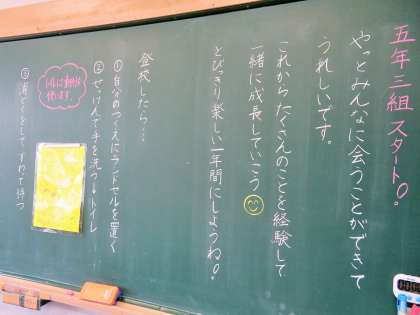 五年三組スタート!。
やっとみんなに会うことができて
うれしいです。
これからたくさんのことを経験して
一緒に成長していこう
とびっきり楽しい一年間にしようね!
登校したら…
①自分のつくえにランドセルを置く
②せっけんで手を洗う→トイレ
③消どくをして、すわって待つ